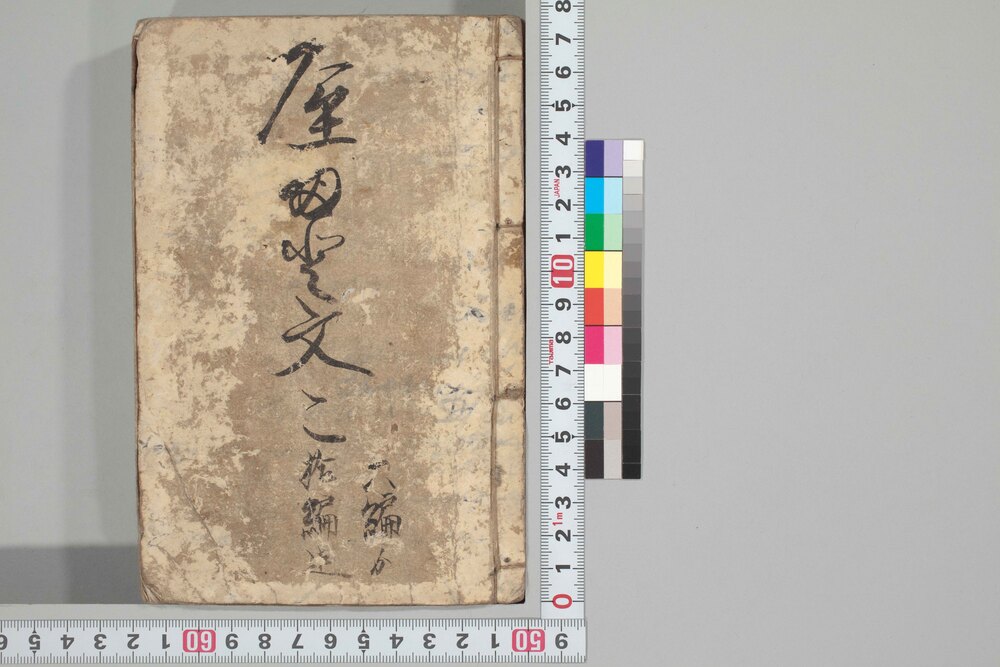 屋満登文こ
六編ゟ
拾編迄
8 7 6 5 4 3 2 1 10 9 8 7 6 5 4 3 2 1 0
JAPAN
Tajima
1m
9 50 1 2 3 4 5 6 7 8 9 60 1 2 3 4 5 6